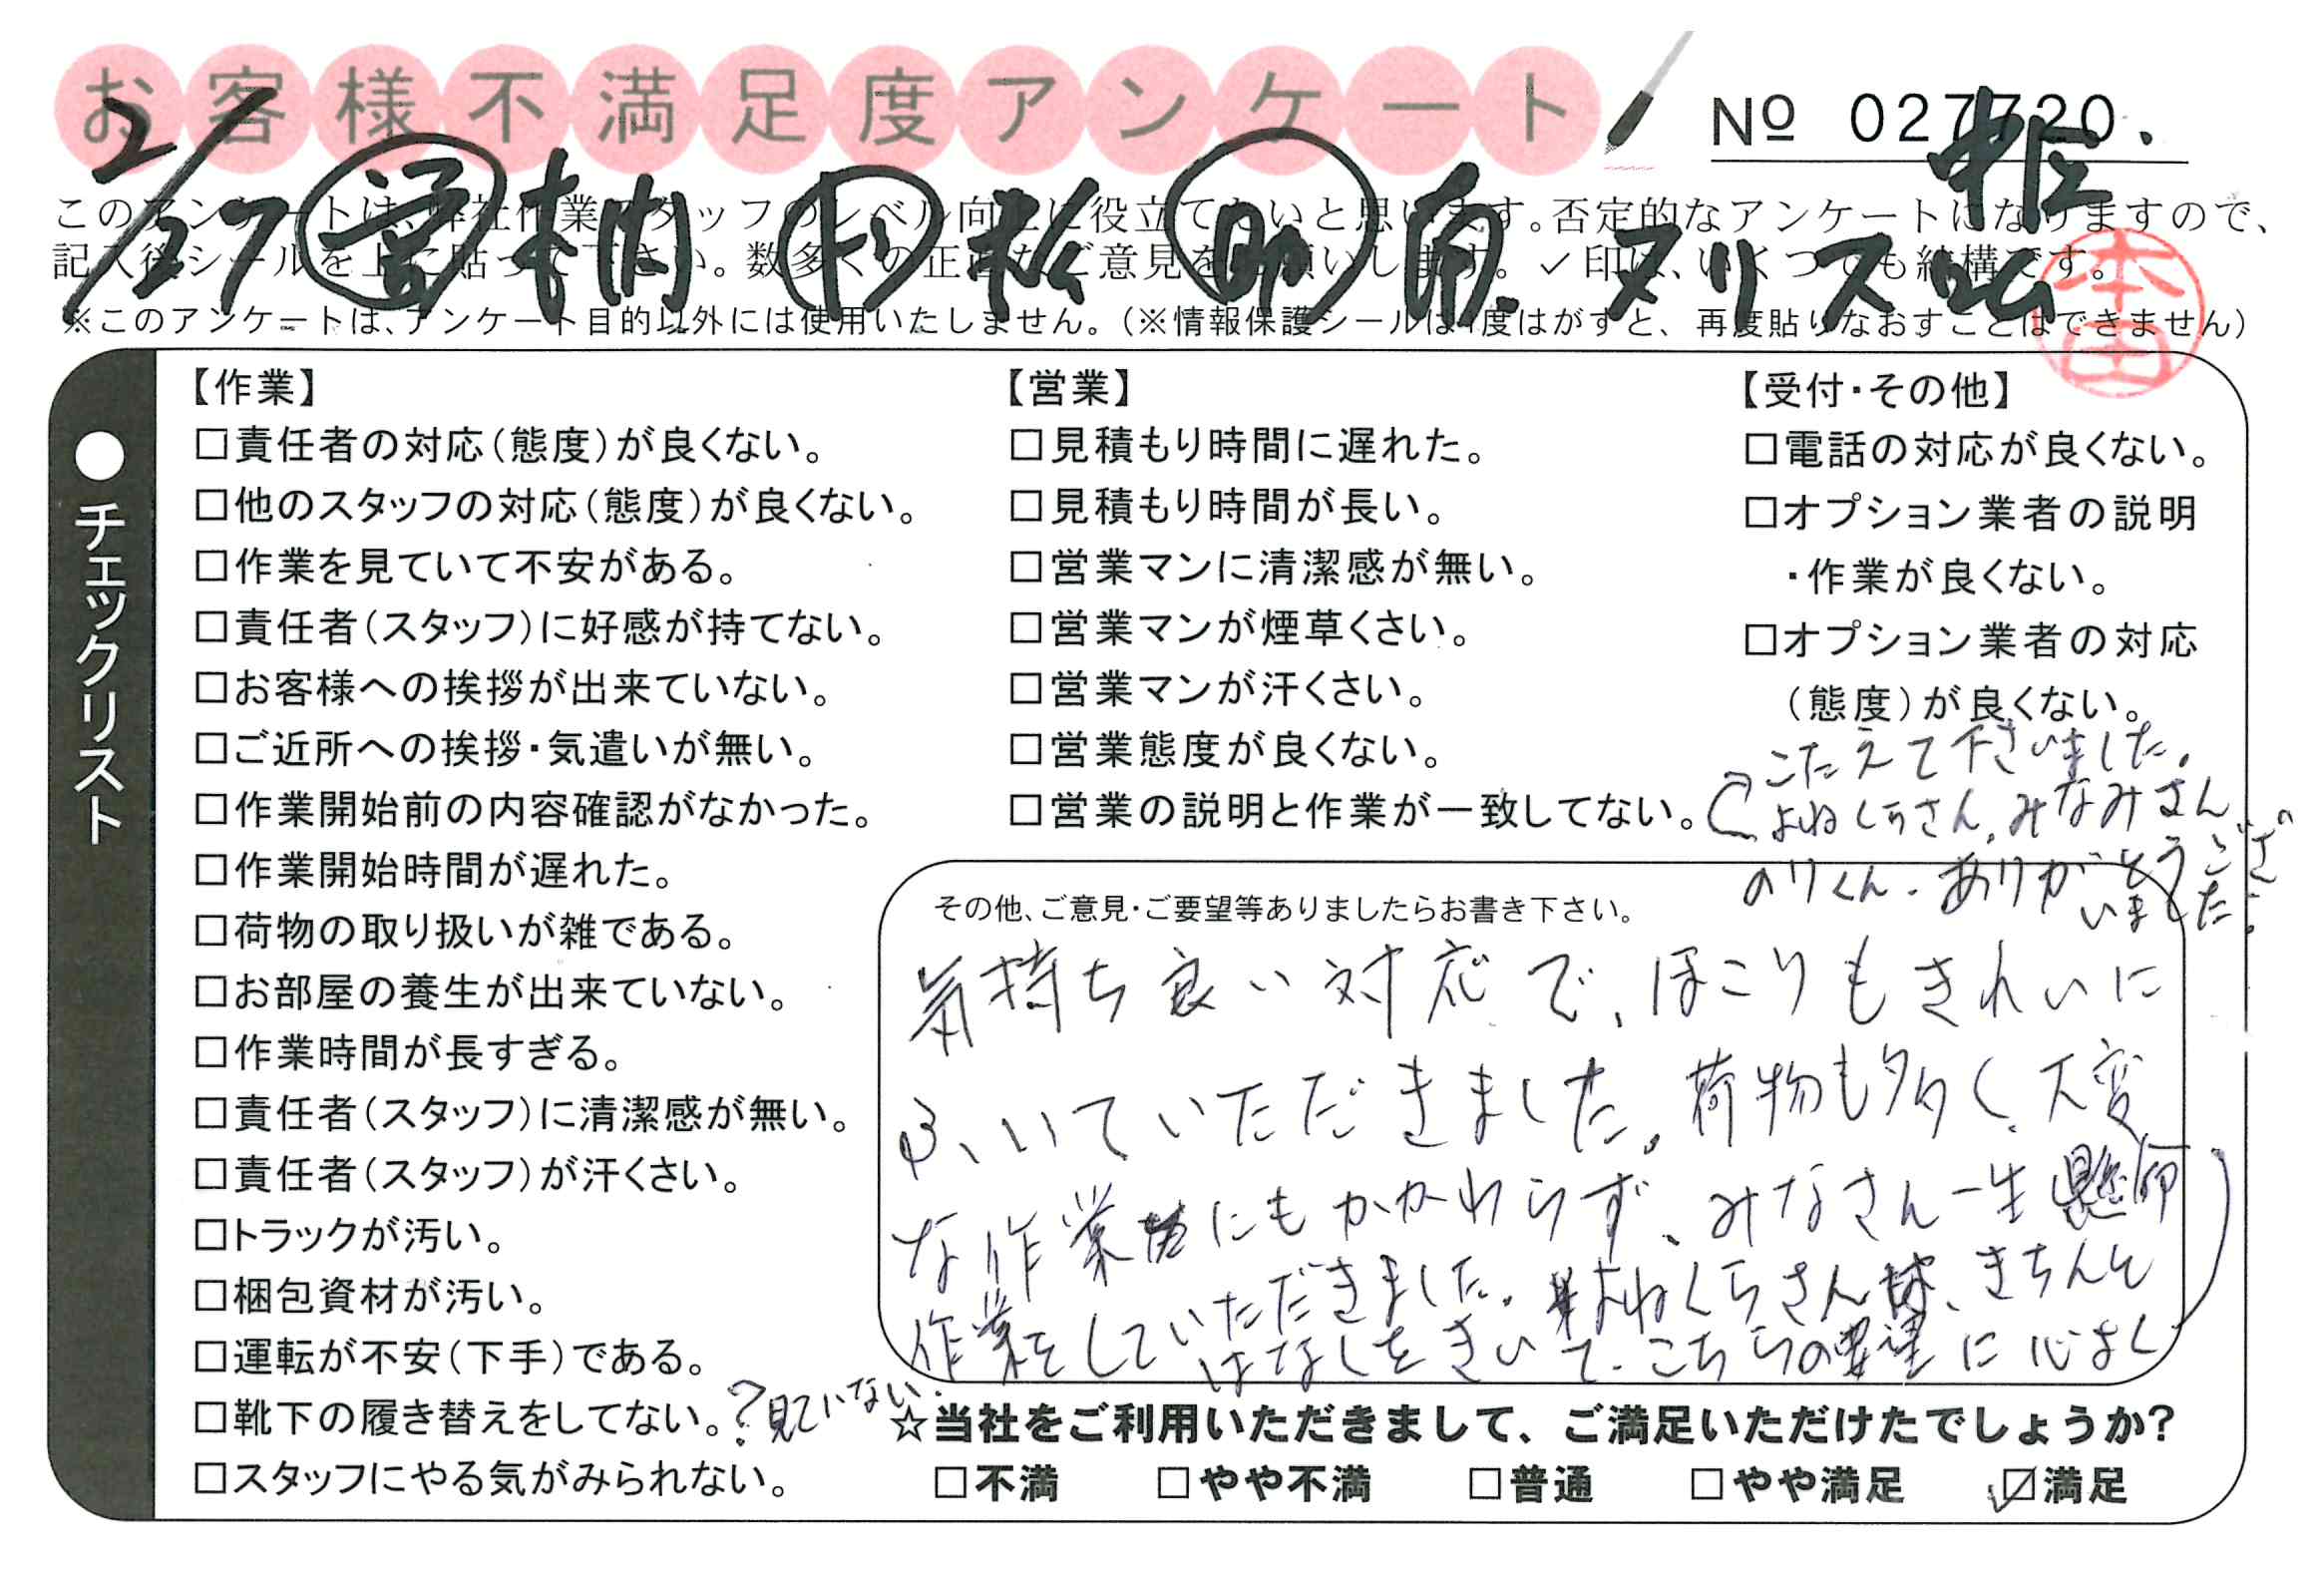 お客様不満足度アンケート
№ 027720.
2/27 営 本間 ド 松 助 原 タリス
本田
このアンケートは、弊社作業スタッフのレベル向上に役立てたいと思います。否定的なアンケートになりますので、
記入後シールを上に貼って下さい。数多くの正直なご意見をお願いします。✓印は、いくつでも結構です。
※このアンケートは、アンケート目的以外には使用いたしません。（※情報保護シールは1度はがすと、再度貼りなおすことはできません）
●チェックリスト
【作業】
□責任者の対応（態度）が良くない。
□他のスタッフの対応（態度）が良くない。
□作業を見ていて不安がある。
□責任者（スタッフ）に好感が持てない。
□お客様への挨拶が出来ていない。
□ご近所への挨拶・気遣いが無い。
□作業開始前の内容確認がなかった。
□作業開始時間が遅れた。
□荷物の取り扱いが雑である。
□お部屋の養生が出来ていない。
□作業時間が長すぎる。
□責任者（スタッフ）に清潔感が無い。
□責任者（スタッフ）が汗くさい。
□トラックが汚い。
□梱包資材が汚い。
□運転が不安（下手）である。
□靴下の履き替えをしてない。?見ていない.
□スタッフにやる気がみられない。
【営業】
□見積もり時間に遅れた。
□見積もり時間が長い。
□営業マンに清潔感が無い。
□営業マンが煙草くさい。
□営業マンが汗くさい。
□営業態度が良くない。
□営業の説明と作業が一致してない。
【受付・その他】
□電話の対応が良くない。
□オプション業者の説明
・作業が良くない。
□オプション業者の対応
（態度）が良くない。
その他、ご意見・ご要望等ありましたらお書き下さい。
気持ち良い対応で、ほこりもきれいに
ふいていただきました。荷物も多く、大変
な作業にもかかわらず、みなさん一生懸命
作業をしていただきました。よねくらさん、きちんと
はなしをきいて、こちらの要望に心よく
こたえて下さいました。
よねくらさん、みなみさん
のりくん、ありがとうござ
いました。
☆当社をご利用いただきまして、ご満足いただけたでしょうか?
□不満 □やや不満 □普通 □やや満足 ☑満足